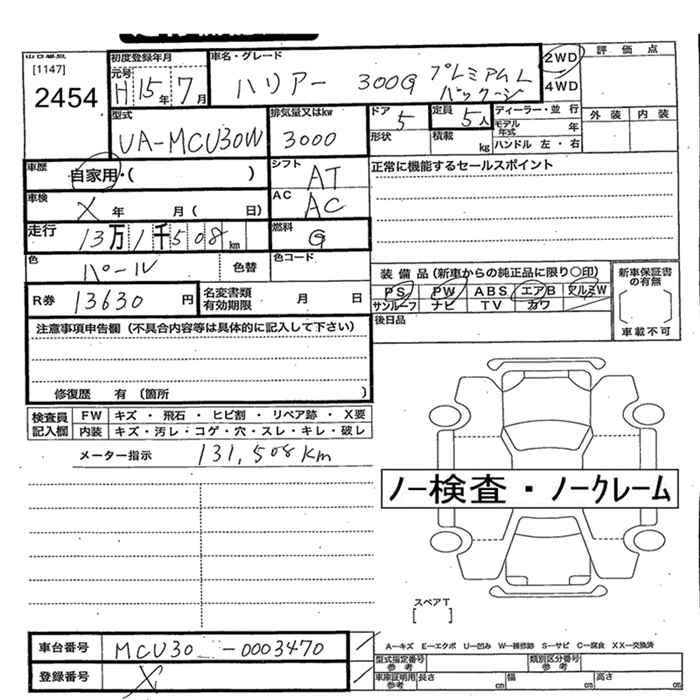 [1147]
2454
初度登録年月
元号
H 15年 7月
車名・グレード
ハリアー 300G プレミアムL
パッケージ
2WD
4WD
評価点
外装 内装
型式
UA-MCU30W
排気量又はkw
3000
ドア
5
形状
定員
5人
積載
kg
ディーラー・並行
モデル年式 年
ハンドル 左・右
車歴
自家用・( )
シフト
AT
正常に機能するセールスポイント
車検
X 年 月( 日)
AC
AC
走行
13万1千508km
燃料
G
色
パール
色替
色コード
装備品(新車からの純正品に限り○印)
PS PW ABS エアB アルミW
サンルーフ ナビ TV カワ
新車保証書の有無
車載不可
R券 13630円
名変書類有効期限 月 日
後日品
注意事項申告欄(不具合内容等は具体的に記入して下さい)
修復歴 有(箇所 )
検査員記入欄
FW キズ・飛石・ヒビ割・リペア跡・X要
内装 キズ・汚レ・コゲ・穴・スレ・キレ・破レ
メーター指示 131,508km
ノー検査・ノークレーム
スペアT
[ ]
車台番号 MCU30-0003470
登録番号 X
A―キズ E―エクボ U―凹み W―補修跡 S―サビ C―腐食 XX―交換済
型式指定番号参考
類別区分番号参考
車庫証明用参考 長さ cm 幅 cm 高さ cm